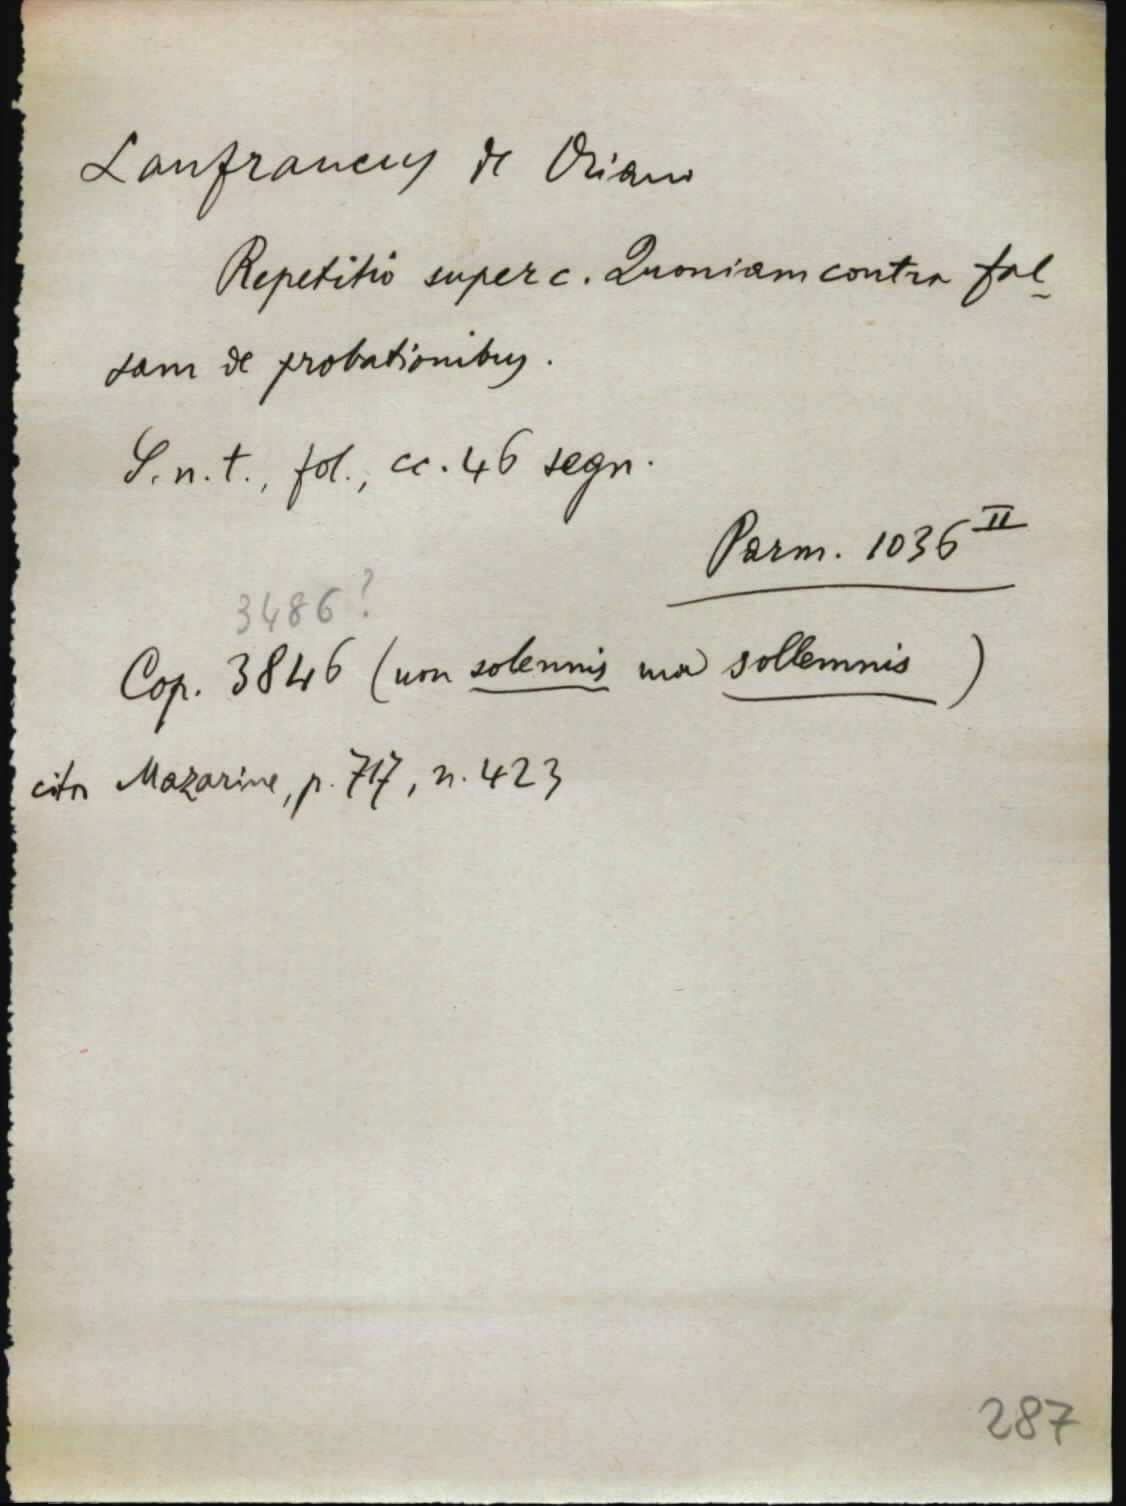 Lanfrancus de Oriano
Repetitio super c. Quoniam contra fal-
sam de probationibus.
S.n.t., fol., cc. 46 segn.
Parm. 1036 II
3486?
Cop. 3846 (non solennis ma sollemnis)
cita Mazarine, p. 717, n. 423
287